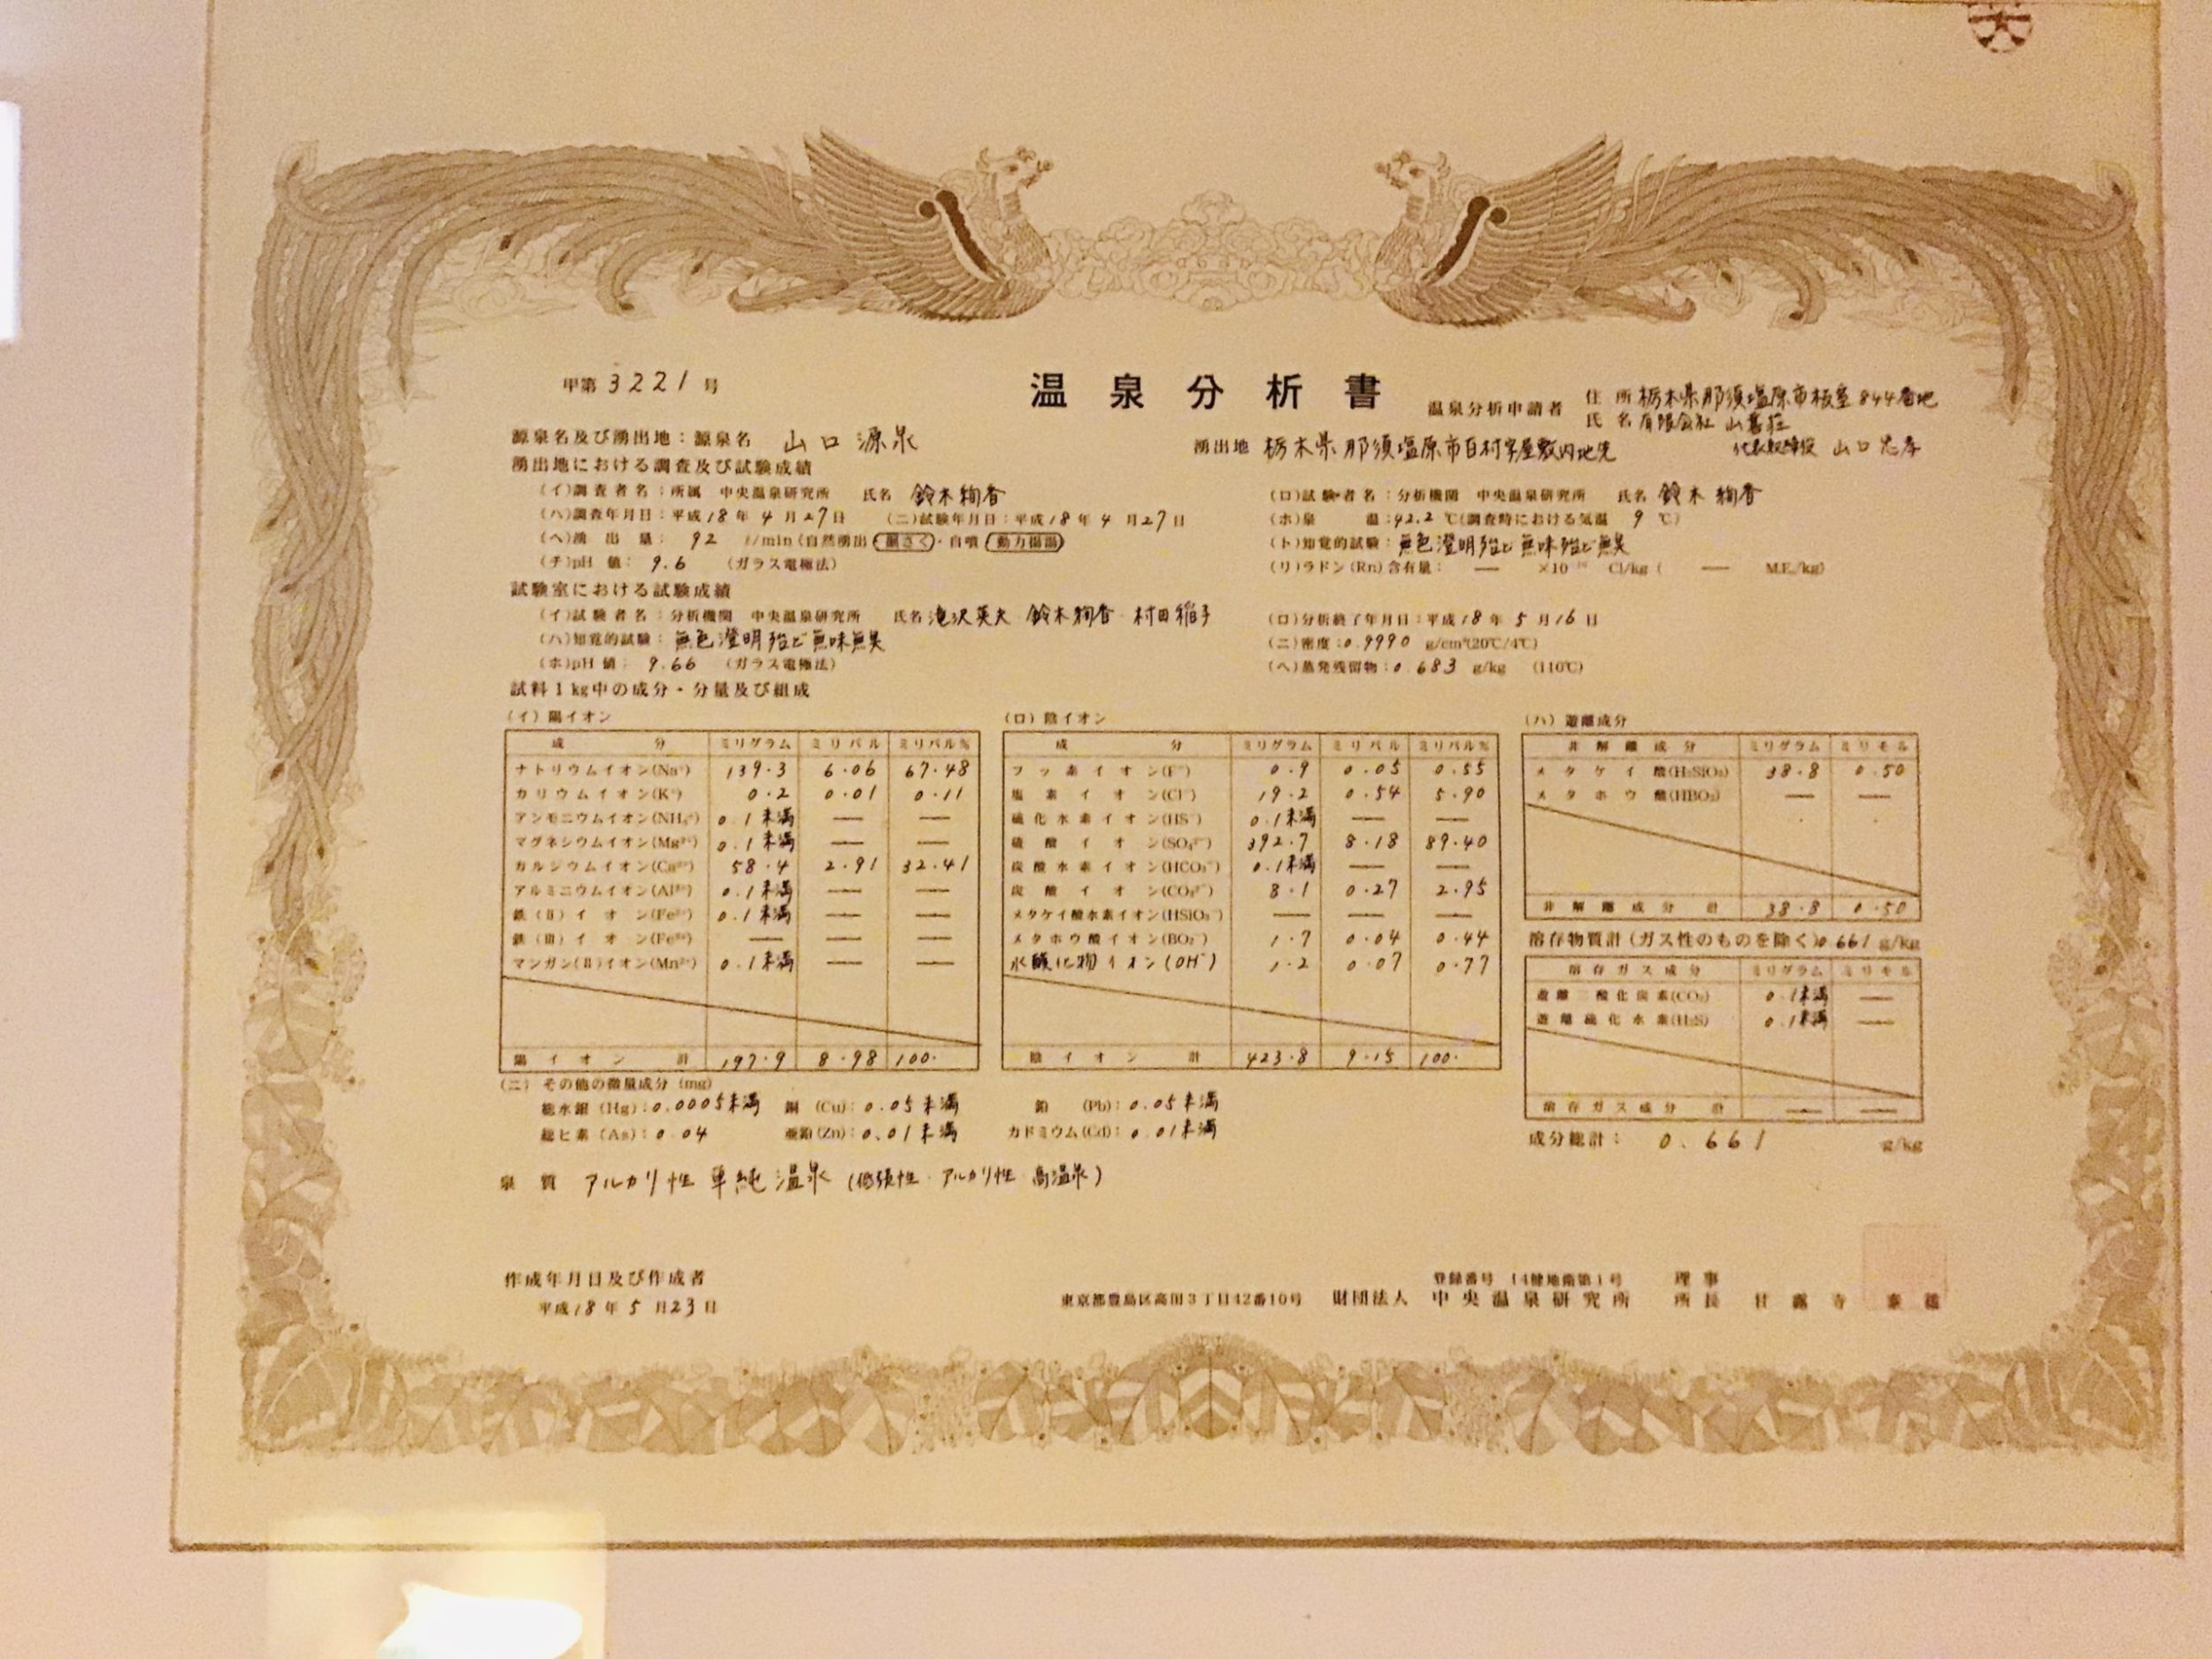 甲第3221号
温泉分析書
温泉分析申請者 住所 栃木県那須塩原市板室844番地
氏名 有限会社 山喜荘
代表取締役 山口忠孝
源泉名及び湧出地：源泉名 山口源泉 湧出地 栃木県那須塩原市百村字屋敷内地先
湧出地における調査及び試験成績
(イ)調査者名：所属 中央温泉研究所 氏名 鈴木絢香 (ロ)試験者名：分析機関 中央温泉研究所 氏名 鈴木絢香
(ハ)調査年月日：平成18年4月27日 (ニ)試験年月日：平成18年4月27日 (ホ)泉温：42.2℃(調査時における気温 9℃)
(ヘ)湧出量： 92 l/min (自然湧出 掘さく・自噴 動力揚湯) (ト)知覚的試験：無色澄明殆ど無味殆ど無臭
(チ)pH値： 9.6 (ガラス電極法) (リ)ラドン(Rn)含有量： — ×10 Ci/kg ( — M.E./kg)
試験室における試験成績
(イ)試験者名：分析機関 中央温泉研究所 氏名 滝沢英夫 鈴木絢香 村田稲子 (ロ)分析終了年月日：平成18年5月16日
(ハ)知覚的試験：無色澄明殆ど無味無臭 (ニ)密度：0.9990 g/cm³(20℃/4℃)
(ホ)pH値： 9.66 (ガラス電極法) (ヘ)蒸発残留物：0.683 g/kg (110℃)
試料1kg中の成分・分量及び組成
(イ) 陽イオン
成分 ミリグラム ミリバル ミリバル%
ナトリウムイオン(Na⁺) 139.3 6.06 67.48
カリウムイオン(K⁺) 0.2 0.01 0.11
アンモニウムイオン(NH₄⁺) 0.1未満 — —
マグネシウムイオン(Mg²⁺) 0.1未満 — —
カルシウムイオン(Ca²⁺) 58.4 2.91 32.41
アルミニウムイオン(Al³⁺) 0.1未満 — —
鉄(II)イオン(Fe²⁺) 0.1未満 — —
鉄(III)イオン(Fe³⁺) — — —
マンガン(II)イオン(Mn²⁺) 0.1未満 — —
陽イオン計 197.9 8.98 100.
(ロ) 陰イオン
成分 ミリグラム ミリバル ミリバル%
フッ素イオン(F⁻) 0.9 0.05 0.55
塩素イオン(Cl⁻) 19.2 0.54 5.90
硫化水素イオン(HS⁻) 0.1未満 — —
硫酸イオン(SO₄²⁻) 392.7 8.18 89.40
炭酸水素イオン(HCO₃⁻) 0.1未満 — —
炭酸イオン(CO₃²⁻) 8.1 0.27 2.95
メタケイ酸水素イオン(HSiO₃⁻) — — —
メタホウ酸イオン(BO₂⁻) 1.7 0.04 0.44
水酸化物イオン(OH⁻) 1.2 0.07 0.77
陰イオン計 423.8 9.15 100.
(ハ) 遊離成分
非解離成分 ミリグラム ミリモル
メタケイ酸(H₂SiO₃) 38.8 0.50
メタホウ酸(HBO₂) — —
非解離成分計 38.8 0.50
溶存物質計(ガス性のものを除く)0.661 g/kg
溶存ガス成分 ミリグラム ミリモル
遊離二酸化炭素(CO₂) 0.1未満 —
遊離硫化水素(H₂S) 0.1未満 —
溶存ガス成分計 — —
成分総計： 0.661 g/kg
(ニ) その他の微量成分 (mg)
総水銀(Hg)：0.0005未満 銅(Cu)：0.05未満 鉛(Pb)：0.05未満
総ヒ素(As)：0.04 亜鉛(Zn)：0.01未満 カドミウム(Cd)：0.01未満
泉質 アルカリ性単純温泉 (低張性 アルカリ性 高温泉)
作成年月日及び作成者
平成18年5月23日
登録番号 14健地衛第1号 理事
東京都豊島区高田3丁目42番10号 財団法人 中央温泉研究所 所長 甘露寺 泰雄